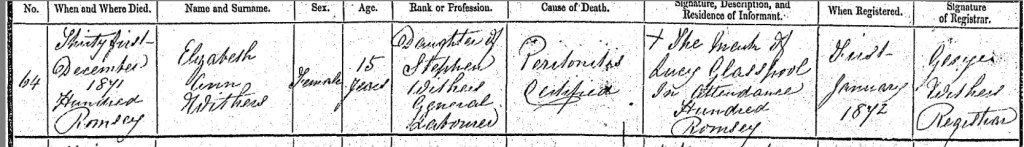 No. When and Where Died. Name and Surname. Sex. Age. Rank or Profession. Cause of Death. Signature, Description, and Residence of Informant. When Registered. Signature of Registrar.
64
Thirty first
December
1871
Hundred
Romsey
Elizabeth
Ann
Withers
Female
15
Years
Daughter of
Stephen
Withers
General
Labourer
Peritonitis
Certified
+ The Mark of
Lucy Glasspool
In attendance
Hundred
Romsey
First
January
1872
George
Withers
Registrar